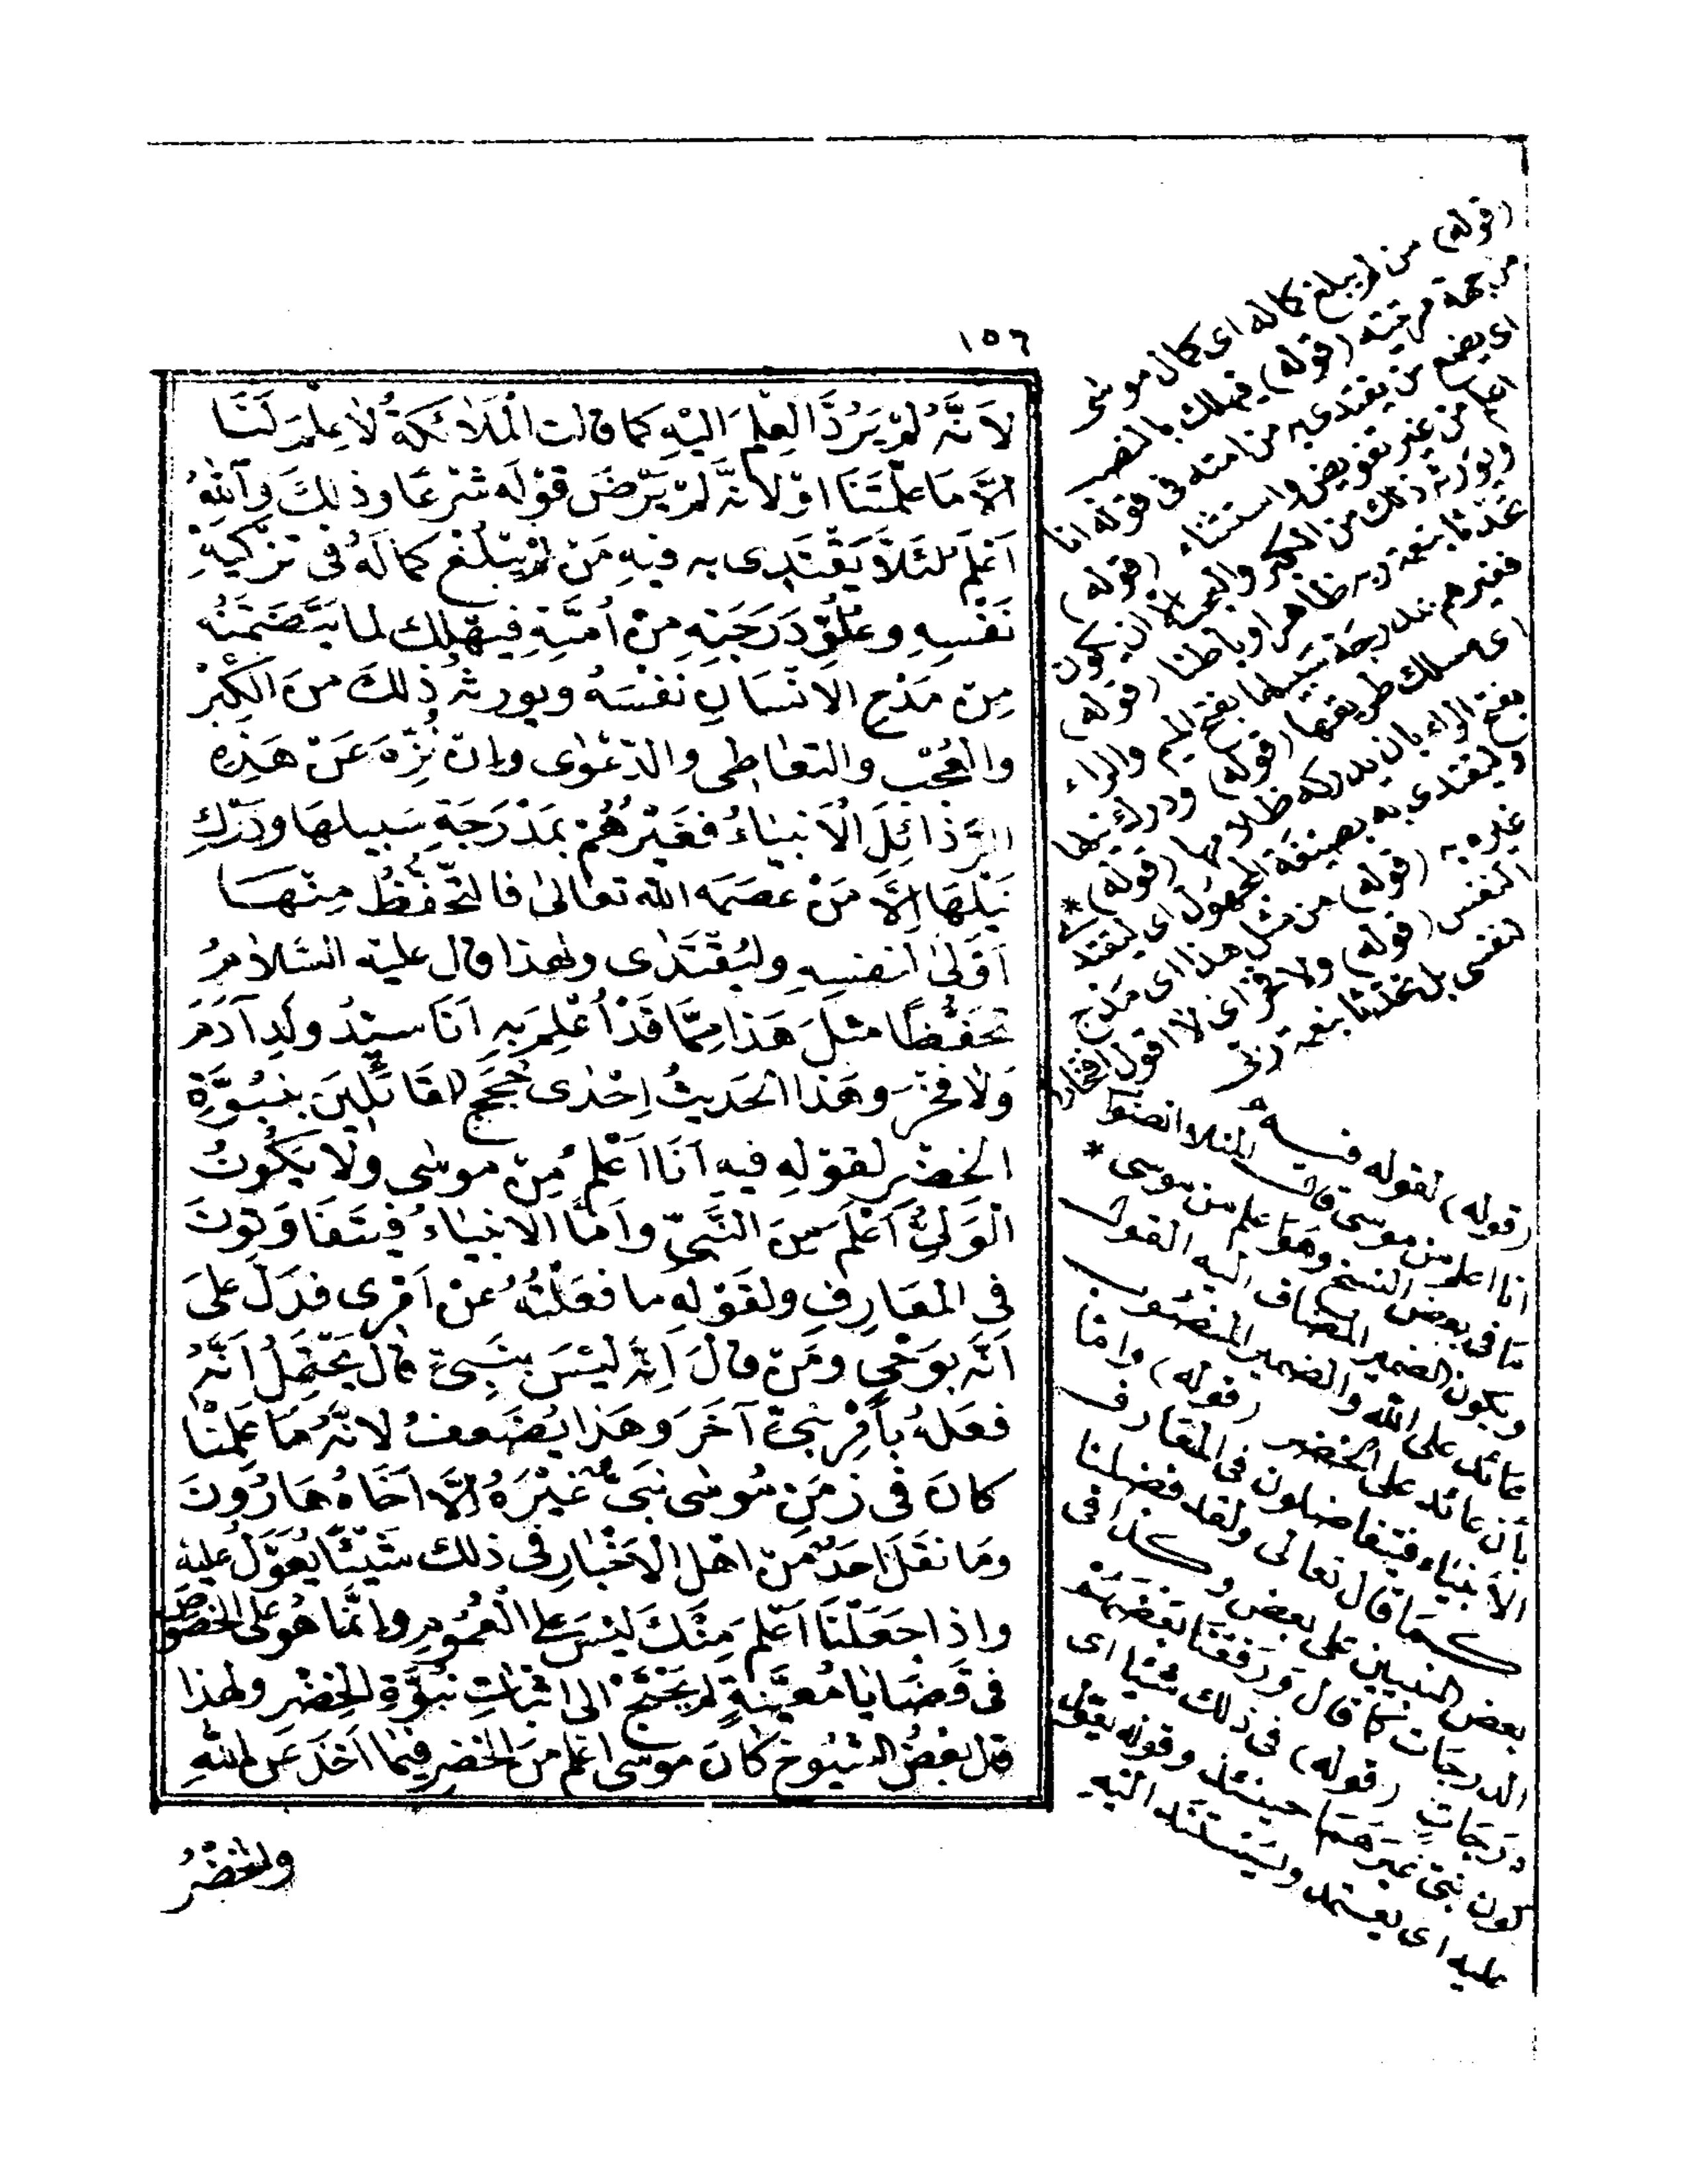 ١٥٦
لِاَنَّهُ لَمْ يَرُدَّ الْعِلْمَ اِلَيْهِ كما قالت الْمَلَائكَةُ لاعِلْمَ لَنَا
اِلَّا مَا عَلَّمْتَنَا اوْ لِاَنَّهُ لَمْ يَرْضَ قَوْلَه شَرْعًا وذلِكَ وَاللهُ
اَعْلَمُ لئَلَّا يَقْتَدِىَ به فيهِ مَنْ لَمْ يَبْلُغْ كمَالَهُ فى تزْكيَةِ
نَفْسِهِ وعُلُوِّ دَرَجَتِهِ مِنْ اُمَّتِهِ فيَهْلِكَ لما تَضَمَّنَهُ
مِنْ مَدْحِ الاِنْسَانِ نَفْسَهُ ويورثُه ذٰلكَ منَ الْكِبْرِ
والعُجْبِ والتعَاطِى والدَّعْوٰى وَاِنْ نُزِّهَ عَنْ هَذِهِ
الرَّذَائِلِ الْاَنبيَاءُ فغَيْرُهُمْ بمَدْرَجَةِ سَبيلهَا ودَرْكِ
نَيْلهَا اِلَّا مَنْ عَصَمَه الله تعَالىٰ فالتَّحَفُّظُ مِنْهَا
اَوْلىٰ لنفسِهِ ولِيُقْتَدٰى به ولهذا قال عليْه السَّلَامُ
تَحَفُّظًا مثلَ هَذا مِمَّا قَدْ اُعْلِمَ بِهِ اَنَا سيّدُ ولدِ آدَمَ
وَلَا فَخْرَ وهَذا الحَديثُ اِحْدٰى حُجَجِ القَائلينَ بنُبُوَّةِ
الخضْرِ لقوْلهِ فيه اَنَا اَعْلَمُ مِنْ موسٰى ولَا يَكُونُ
الْوَلِىُّ اَعْلَمَ مِنَ النَّبىِّ واَمَّا الانبيَاءُ فيتَفَاوَتُونَ
فى المعَارِفِ ولقَوْلهِ ما فعَلْتُهُ عَنْ اَمْرِى فدَلَّ علىَ
اَنَّهُ بوَحْىٍ ومَنْ قالَ اِنَّهُ ليْسَ بنَبِىٍّ قالَ يَحْتَمِلُ اَنَّهُ
فعَلَهُ بأَمْرِ نَبىٍّ آخَرَ وهَذا يَضْعُفُ لانَّهُ مَا عَلِمْنَا
كانَ فى زمَنِ مُوسٰى نَبىٌّ غَيْرُهُ اِلَّا اَخَاهُ هَارُونَ
ومَا نقَلَ احَدٌ مِنْ اهْلِ الاَخْبَارِ فى ذلك شَيْئًا يُعَوَّلُ عليْه
واِذا جَعَلْنَا اَعْلَمَ مِنْكَ لَيْسَ علَى الْعُمُومِ وانَّمَا هُوَ علَى الخصُوصِ
فى قَضَايَا مُعيَّنةٍ لم يَحْتَجْ الى اثبَاتِ نبُوَّةِ الخِضْرِ ولهذا
قال بَعْضُ الشيُوخِ كانَ موسٰى اعْلَمَ منَ الخضرِ فيمَا اَخَذَ عَنِ اللهِ
والخضْرُ
(قوله) من لم يبلغ كماله اى كمال موسٰى
من جهة مرتبته (قوله) فيهلك بالنصب
اى يضم من يقتدى به من امته فى قوله انا
اعلم من غير تفويض واستثناء (قوله)
ويورثه ذلك من الكبر والعجب الا ان يكون
تحدثا بنعمة ربه ظاهرا وباطنا (قوله)
فغيرهم بمدرجة سبيلها بفتح الميم والراء
اى مسلك طريقها (قوله) ودرك نيلها
بفتح الراء بان يدركه ظلامها (قوله) *
وليقتدى به بصيغة المجهول اى ليقتدى
غيره به (قوله) من مثل هذا اى مدح
النفس (قوله) ولا فخر اى لا اقول افتخارا
لنفسى بل تحدثا بنعمة ربى
(قوله) لقوله فيه
انا اعلم من موسى قال المنلا
ما فى بعض النسخ وهو اعلم من موسى *
ويكون الضمير المضاف اليه القول
عائد على الله والضمير المنصوب
بأن عائد على الخضر (قوله) واما
الانبياء فيتفاضلون فى المعارف
كما قال تعالى ولقد فضلنا
بعض النبيين على بعض وكذا فى
الدرجات كما قال ورفعنا بعضهم
درجات (قوله) فى ذلك شيئا اى
كون نبى غيرهما حينئذ وقوله يعول
عليه اى يعتمد ويستند اليه